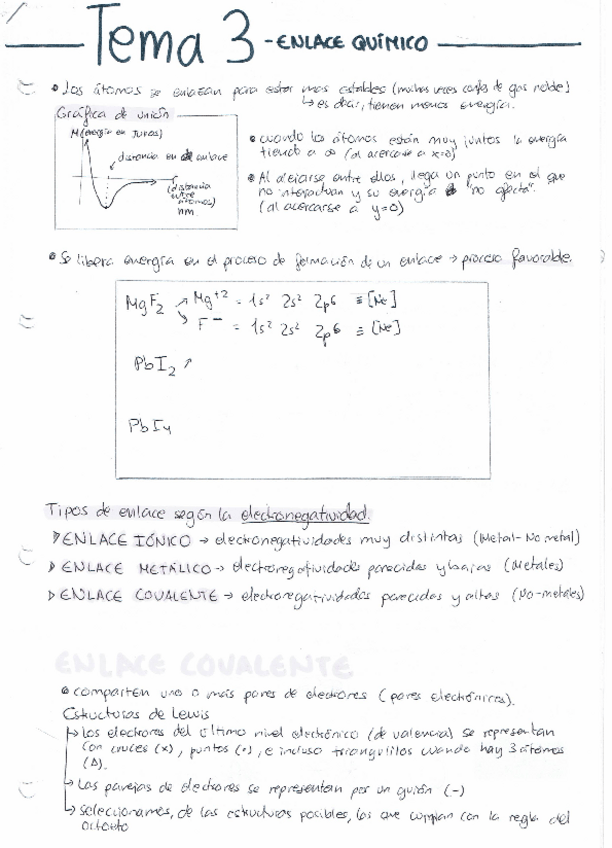 Tema 3 - ENLACE QUÍMICO
• Los átomos se enlazan para estar mas estables (muchas veces confs de gas noble)
↳ es decir, tienen menos energía.
Gráfica de unión
M (energía en Juños)
distancia en el enlace
(distancia
entre
átomos)
nm
• cuando los átomos están muy juntos la energía
tiende a ∞ (al acercarse a x=0)
• Al alejarse entre ellos, llega un punto en el que
no interactuan y su energía "no afecta".
(al acercarse a y=0)
• Se libera energía en el proceso de formación de un enlace → proceso favorable.
MgF₂ → Mg⁺² = 1s² 2s² 2p⁶ ≡ [Ne]
↘ F⁻ = 1s² 2s² 2p⁶ ≡ [Ne]
PbI₂ ↗
PbI₄
Tipos de enlace según la electronegatividad.
▷ ENLACE IÓNICO → electronegatividades muy distintas (Metal-No metal)
▷ ENLACE METÁLICO → electronegatividades parecidas y bajas (Metales)
▷ ENLACE COVALENTE → electronegatividades parecidas y altas (No-metales)
ENLACE COVALENTE
• comparten uno o más pares de electrones (pares electrónicos).
Estructuras de Lewis
↳ Los electrones del último nivel electrónico (de valencia) se representan
con cruces (x), puntos (•), e incluso triangulillos cuando hay 3 átomos
(Δ).
↳ Las parejas de electrones se representan por un guión (-)
↳ seleccionamos, de las estructuras posibles, las que cumplan con la regla del
octeto